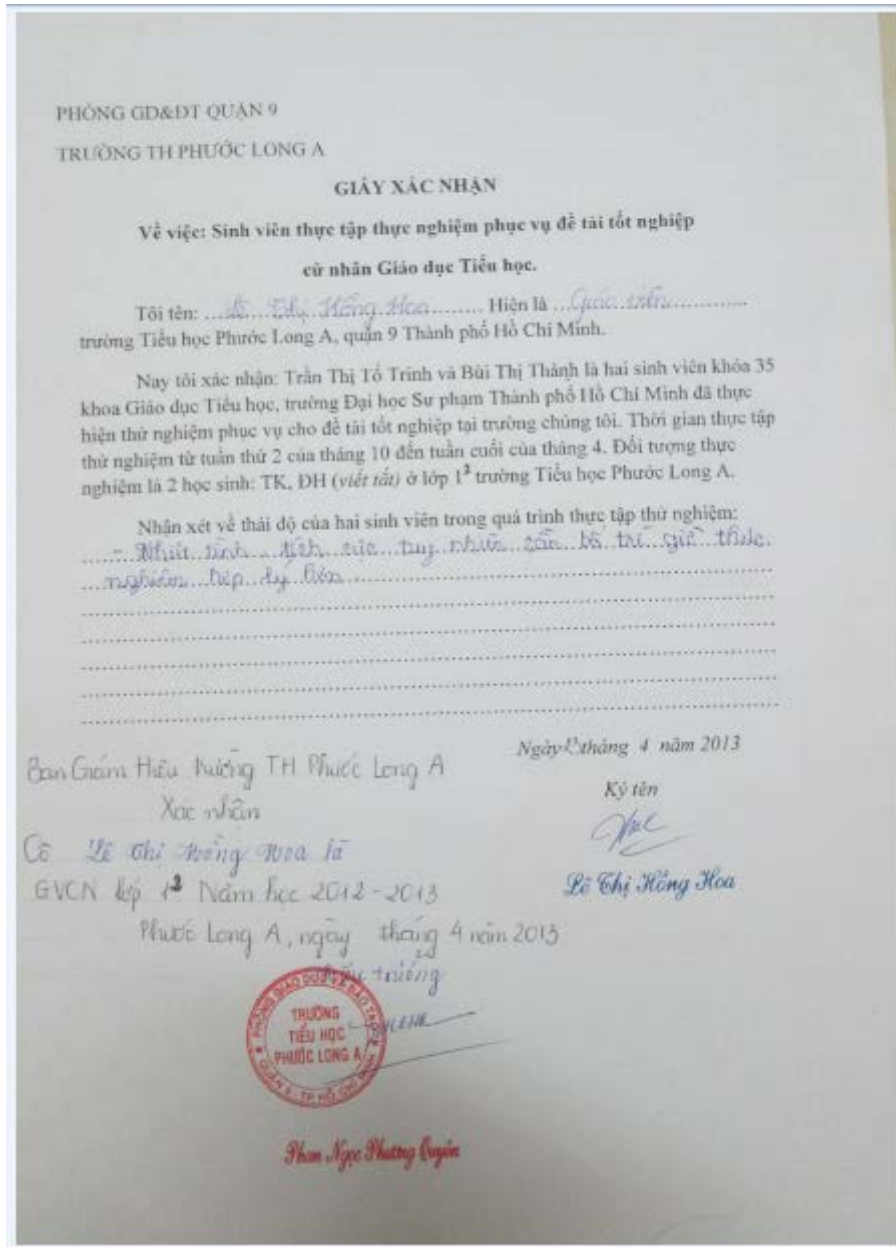 PHÒNG GD&ĐT QUẬN 9
TRƯỜNG TH PHƯỚC LONG A
GIẤY XÁC NHẬN
Về việc: Sinh viên thực tập thực nghiệm phục vụ đề tài tốt nghiệp
cử nhân Giáo dục Tiểu học.
Tôi tên: ...Lê Thị Hồng Hoa......... Hiện là ...Giáo viên...............
trường Tiểu học Phước Long A, quận 9 Thành phố Hồ Chí Minh.
Nay tôi xác nhận: Trần Thị Tố Trinh và Bùi Thị Thành là hai sinh viên khóa 35
khoa Giáo dục Tiểu học, trường Đại học Sư phạm Thành phố Hồ Chí Minh đã thực
hiện thử nghiệm phục vụ cho đề tài tốt nghiệp tại trường chúng tôi. Thời gian thực tập
thử nghiệm từ tuần thứ 2 của tháng 10 đến tuần cuối của tháng 4. Đối tượng thực
nghiệm là 2 học sinh: TK, ĐH (viết tắt) ở lớp 1² trường Tiểu học Phước Long A.
Nhận xét về thái độ của hai sinh viên trong quá trình thực tập thử nghiệm:
- Nhiệt tình, tích cực tuy nhiên cần bố trí giờ thực
nghiệm hợp lý hơn
Ngày tháng 4 năm 2013
Ký tên
Lê Thị Hồng Hoa
Ban Giám Hiệu trường TH Phước Long A
Xác nhận
Cô Lê Thị Hồng Hoa là
GVCN lớp 1² Năm học 2012-2013
Phước Long A, ngày tháng 4 năm 2013
Hiệu trưởng
PHÒNG GIÁO DỤC VÀ ĐÀO TẠO
TRƯỜNG
TIỂU HỌC
PHƯỚC LONG A
QUẬN 9 - TP HỒ CHÍ MINH
Phan Ngọc Phương Quyên